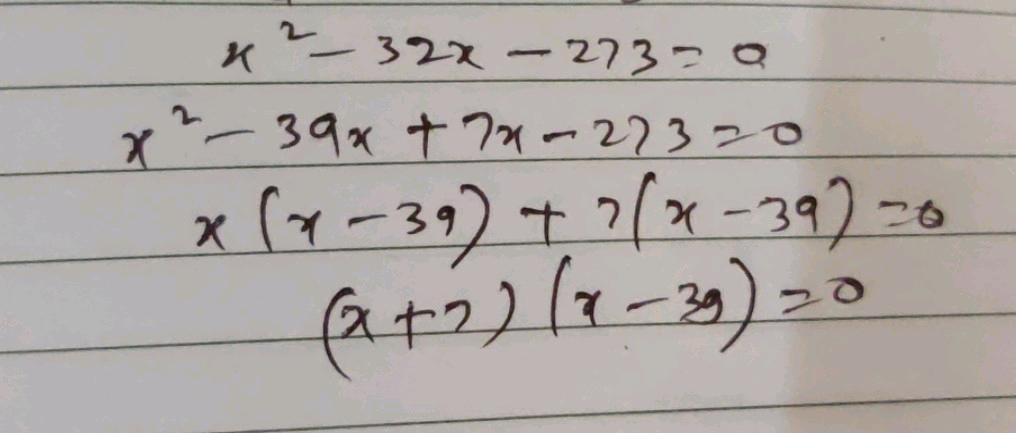 x² - 32x - 273 = 0
x² - 39x + 7x - 273 = 0
x (x - 39) + 7(x - 39) = 0
(x + 7) (x - 39) = 0